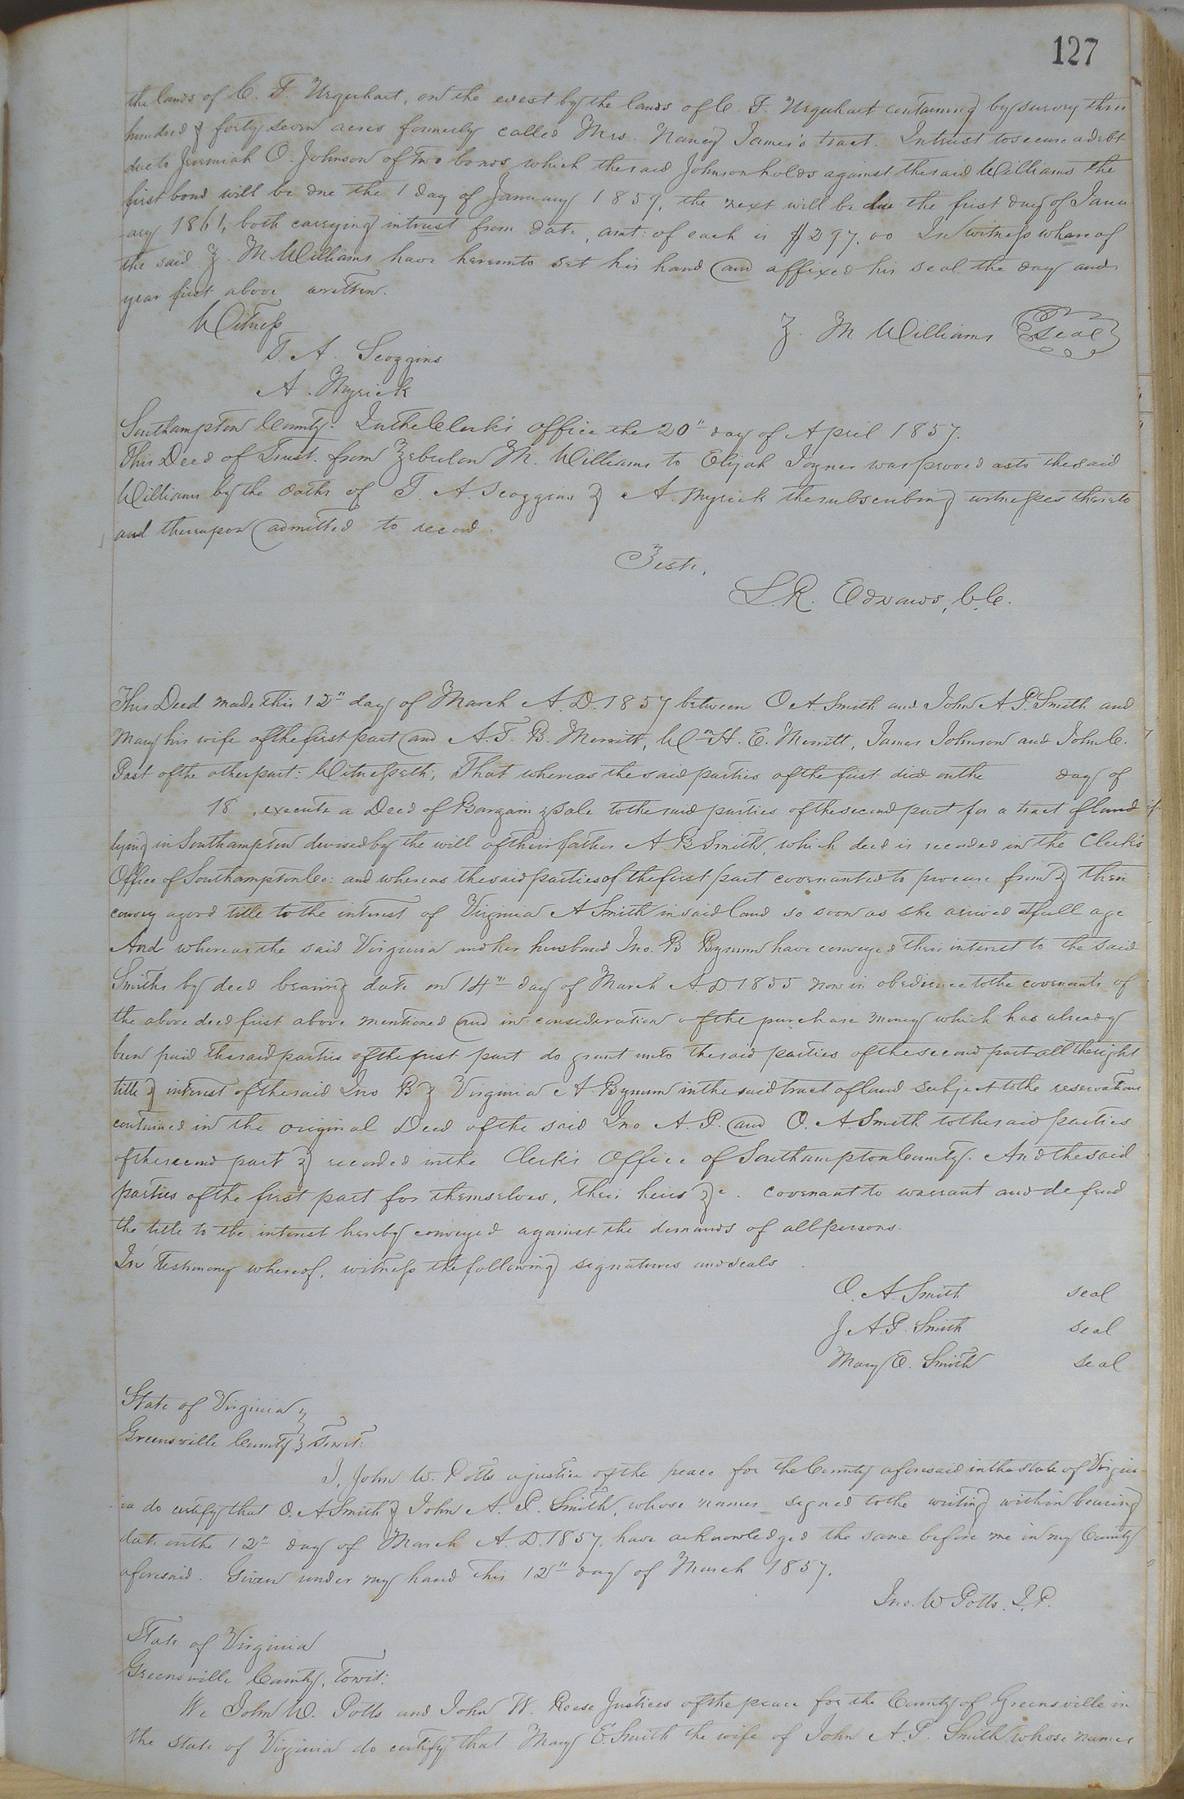 127
the lands of C. F. Urquhart, on the west by the lands of C. F. Urquhart containing by survey three
hundred & forty seven acres formerly called Mrs. Nancy James's tract. In trust to secure a debt
due to Jeremiah O. Johnson of two bonds which the said Johnson holds against the said Williams the
first bond will be due the 1 day of January 1859, the next will be due the first day of Janu
ary 1861, both carrying intrust from date, amt. of each is $297.00 In witness whereof
the said Z. M. Williams have hereunto set his hand and affixed his seal the day and
year first above written.
Witness
Z. M Williams Seal
T. A. Scoggins
A. Myrick
Southampton County. In the Clerk's office the 20" day of April 1857.
This Deed of Trust from Zebulon M. Williams to Elijah Joyner was proved as to the said
Williams by the oaths of T. A. Scoggins & A. Myrick the subscribing witnesses thereto
and thereupon admitted to record.
Teste,
L. R. Edwards, C.C.
This Deed made this 12" day of March A.D. 1857 between O A. Smith and John A. P. Smith and
Mary his wife of the first part and A. F. B. Merritt, Wm H. E. Merritt, James Johnson and John C.
Part of the other part: Witnesseth, That whereas the said parties of the first did on the day of
18 , execute a Deed of Bargain & Sale to the said parties of the second part for a tract of land
lying in Southampton devised by the will of their father A B Smith, which deed is recorded in the Clerk's
Office of Southampton Co: and whereas the said parties of the first part covenanted to procure from & then
convey a good title to the interest of Virginia A Smith in said land so soon as she arrived at full age
And whereas the said Virginia and her husband Jno. B Bynum have conveyed their interest to the said
Smiths by deed bearing date on 14" day of March A.D 1855 now in obedience to the covenants of
the above deed first above mentioned and in consideration of the purchase money which has already
been paid the said parties of the first part do grant unto the said parties of the second part all the right
title & interest of the said Jno B & Virginia A Bynum in the said tract of land subject to the reservations
contained in the original Deed of the said Jno A. P. and O. A Smith to the said parties
of the second part & recorded in the Clerk's Office of Southampton County. And the said
parties of the first part for themselves, their heirs &c. covenant to warrant and defend
the title to the interest hereby conveyed against the demands of all persons.
In Testimony whereof, witness the following signatures and seals
O. A. Smith seal
J A P. Smith seal
Mary E. Smith seal
State of Virginia
Greensville County Towit:
I, John W. Potts a justice of the peace for the County aforesaid in the state of Virgin
ia do certify that O. A Smith & John A. P. Smith, whose names signed to the writing within bearing
date on the 12" day of March A.D. 1857, have acknowledged the same before me in my County
aforesaid. Given under my hand this 12" day of March 1857.
Jno. W Potts. J.P.
State of Virginia
Greensville County, Towit:
We John W. Potts and John W. Reese Justices of the peace for the County of Greensville in
the State of Virginia do certify that Mary E. Smith the wife of John A. P. Smith whose names